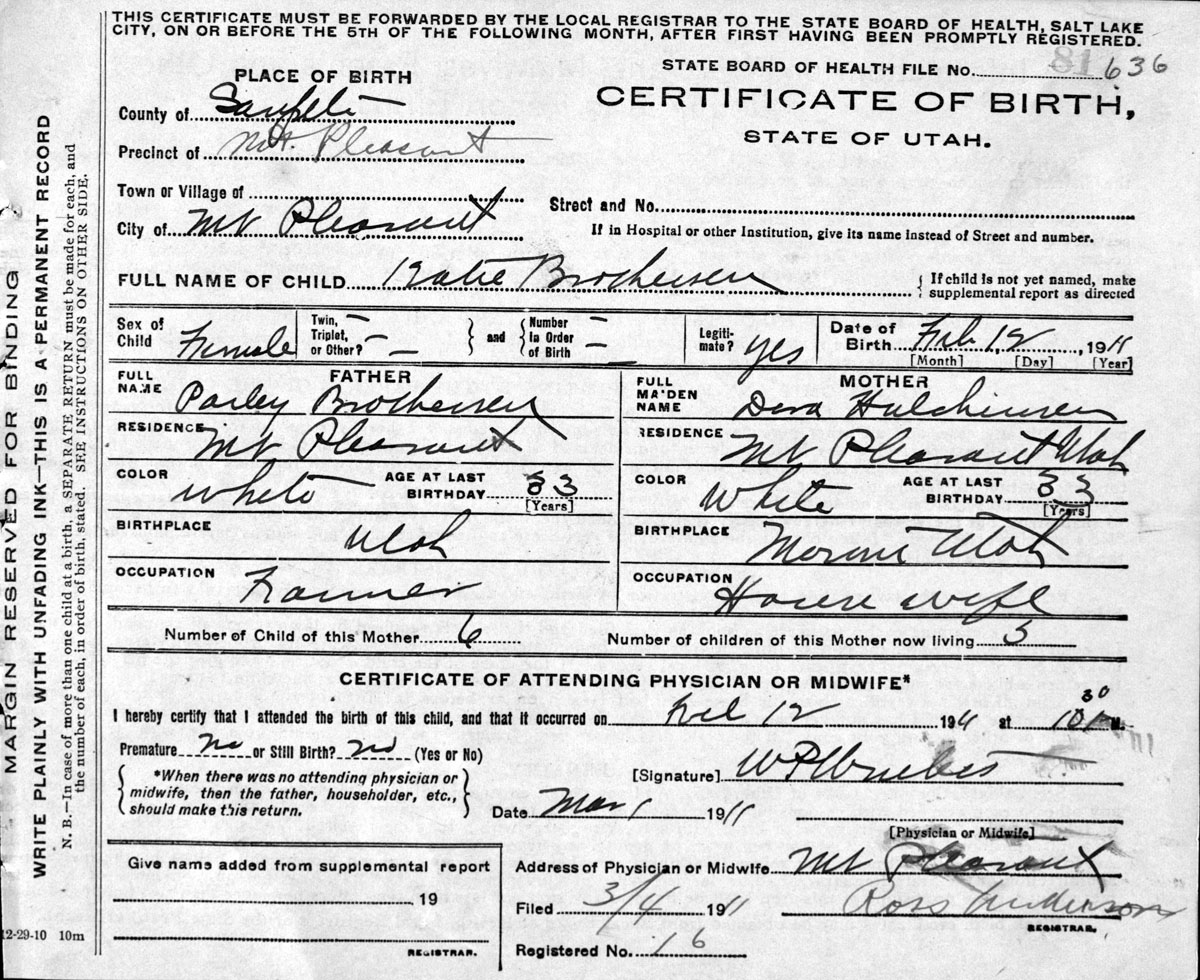 THIS CERTIFICATE MUST BE FORWARDED BY THE LOCAL REGISTRAR TO THE STATE BOARD OF HEALTH, SALT LAKE
CITY, ON OR BEFORE THE 5TH OF THE FOLLOWING MONTH, AFTER FIRST HAVING BEEN PROMPTLY REGISTERED.
MARGIN RESERVED FOR BINDING
WRITE PLAINLY WITH UNFADING INK—THIS IS A PERMANENT RECORD
N. B.—In case of more than one child at a birth, a SEPARATE RETURN must be made for each, and
the number of each, in order of birth, stated. SEE INSTRUCTIONS ON OTHER SIDE.
STATE BOARD OF HEALTH FILE No. 81 636
PLACE OF BIRTH
CERTIFICATE OF BIRTH,
STATE OF UTAH.
County of Sanpete
Precinct of Mt. Pleasant
Town or Village of
Street and No.
City of Mt Pleasant
If in Hospital or other Institution, give its name instead of Street and number.
FULL NAME OF CHILD Katie Brotheisen
If child is not yet named, make
supplemental report as directed
Sex of Child Female
Twin, Triplet, or Other?
and
Number in Order of Birth
Legiti-mate? yes
Date of Birth Feb 12, 1911
[Month] [Day] [Year]
FATHER
FULL NAME Parley Brotheisen
RESIDENCE Mt Pleasant
COLOR White AGE AT LAST BIRTHDAY 33
[Years]
BIRTHPLACE Utah
OCCUPATION Farmer
MOTHER
FULL MAIDEN NAME Dora
RESIDENCE Mt Pleasant Utah
COLOR White AGE AT LAST BIRTHDAY 33
[Years]
BIRTHPLACE Moroni Utah
OCCUPATION House wife
Number of Child of this Mother 6 Number of children of this Mother now living 5
CERTIFICATE OF ATTENDING PHYSICIAN OR MIDWIFE*
I hereby certify that I attended the birth of this child, and that it occurred on Feb 12 1911 at 10 30 P M.
Premature No or Still Birth? No (Yes or No)
*When there was no attending physician or
midwife, then the father, householder, etc.,
should make this return.
[Signature]
Date Mar 1 1911
[Physician or Midwife]
Give name added from supplemental report
19
REGISTRAR.
Address of Physician or Midwife Mt Pleasant
Filed 3/4 1911 Ross Anderson
REGISTRAR.
Registered No. 16
12-29-10 10m